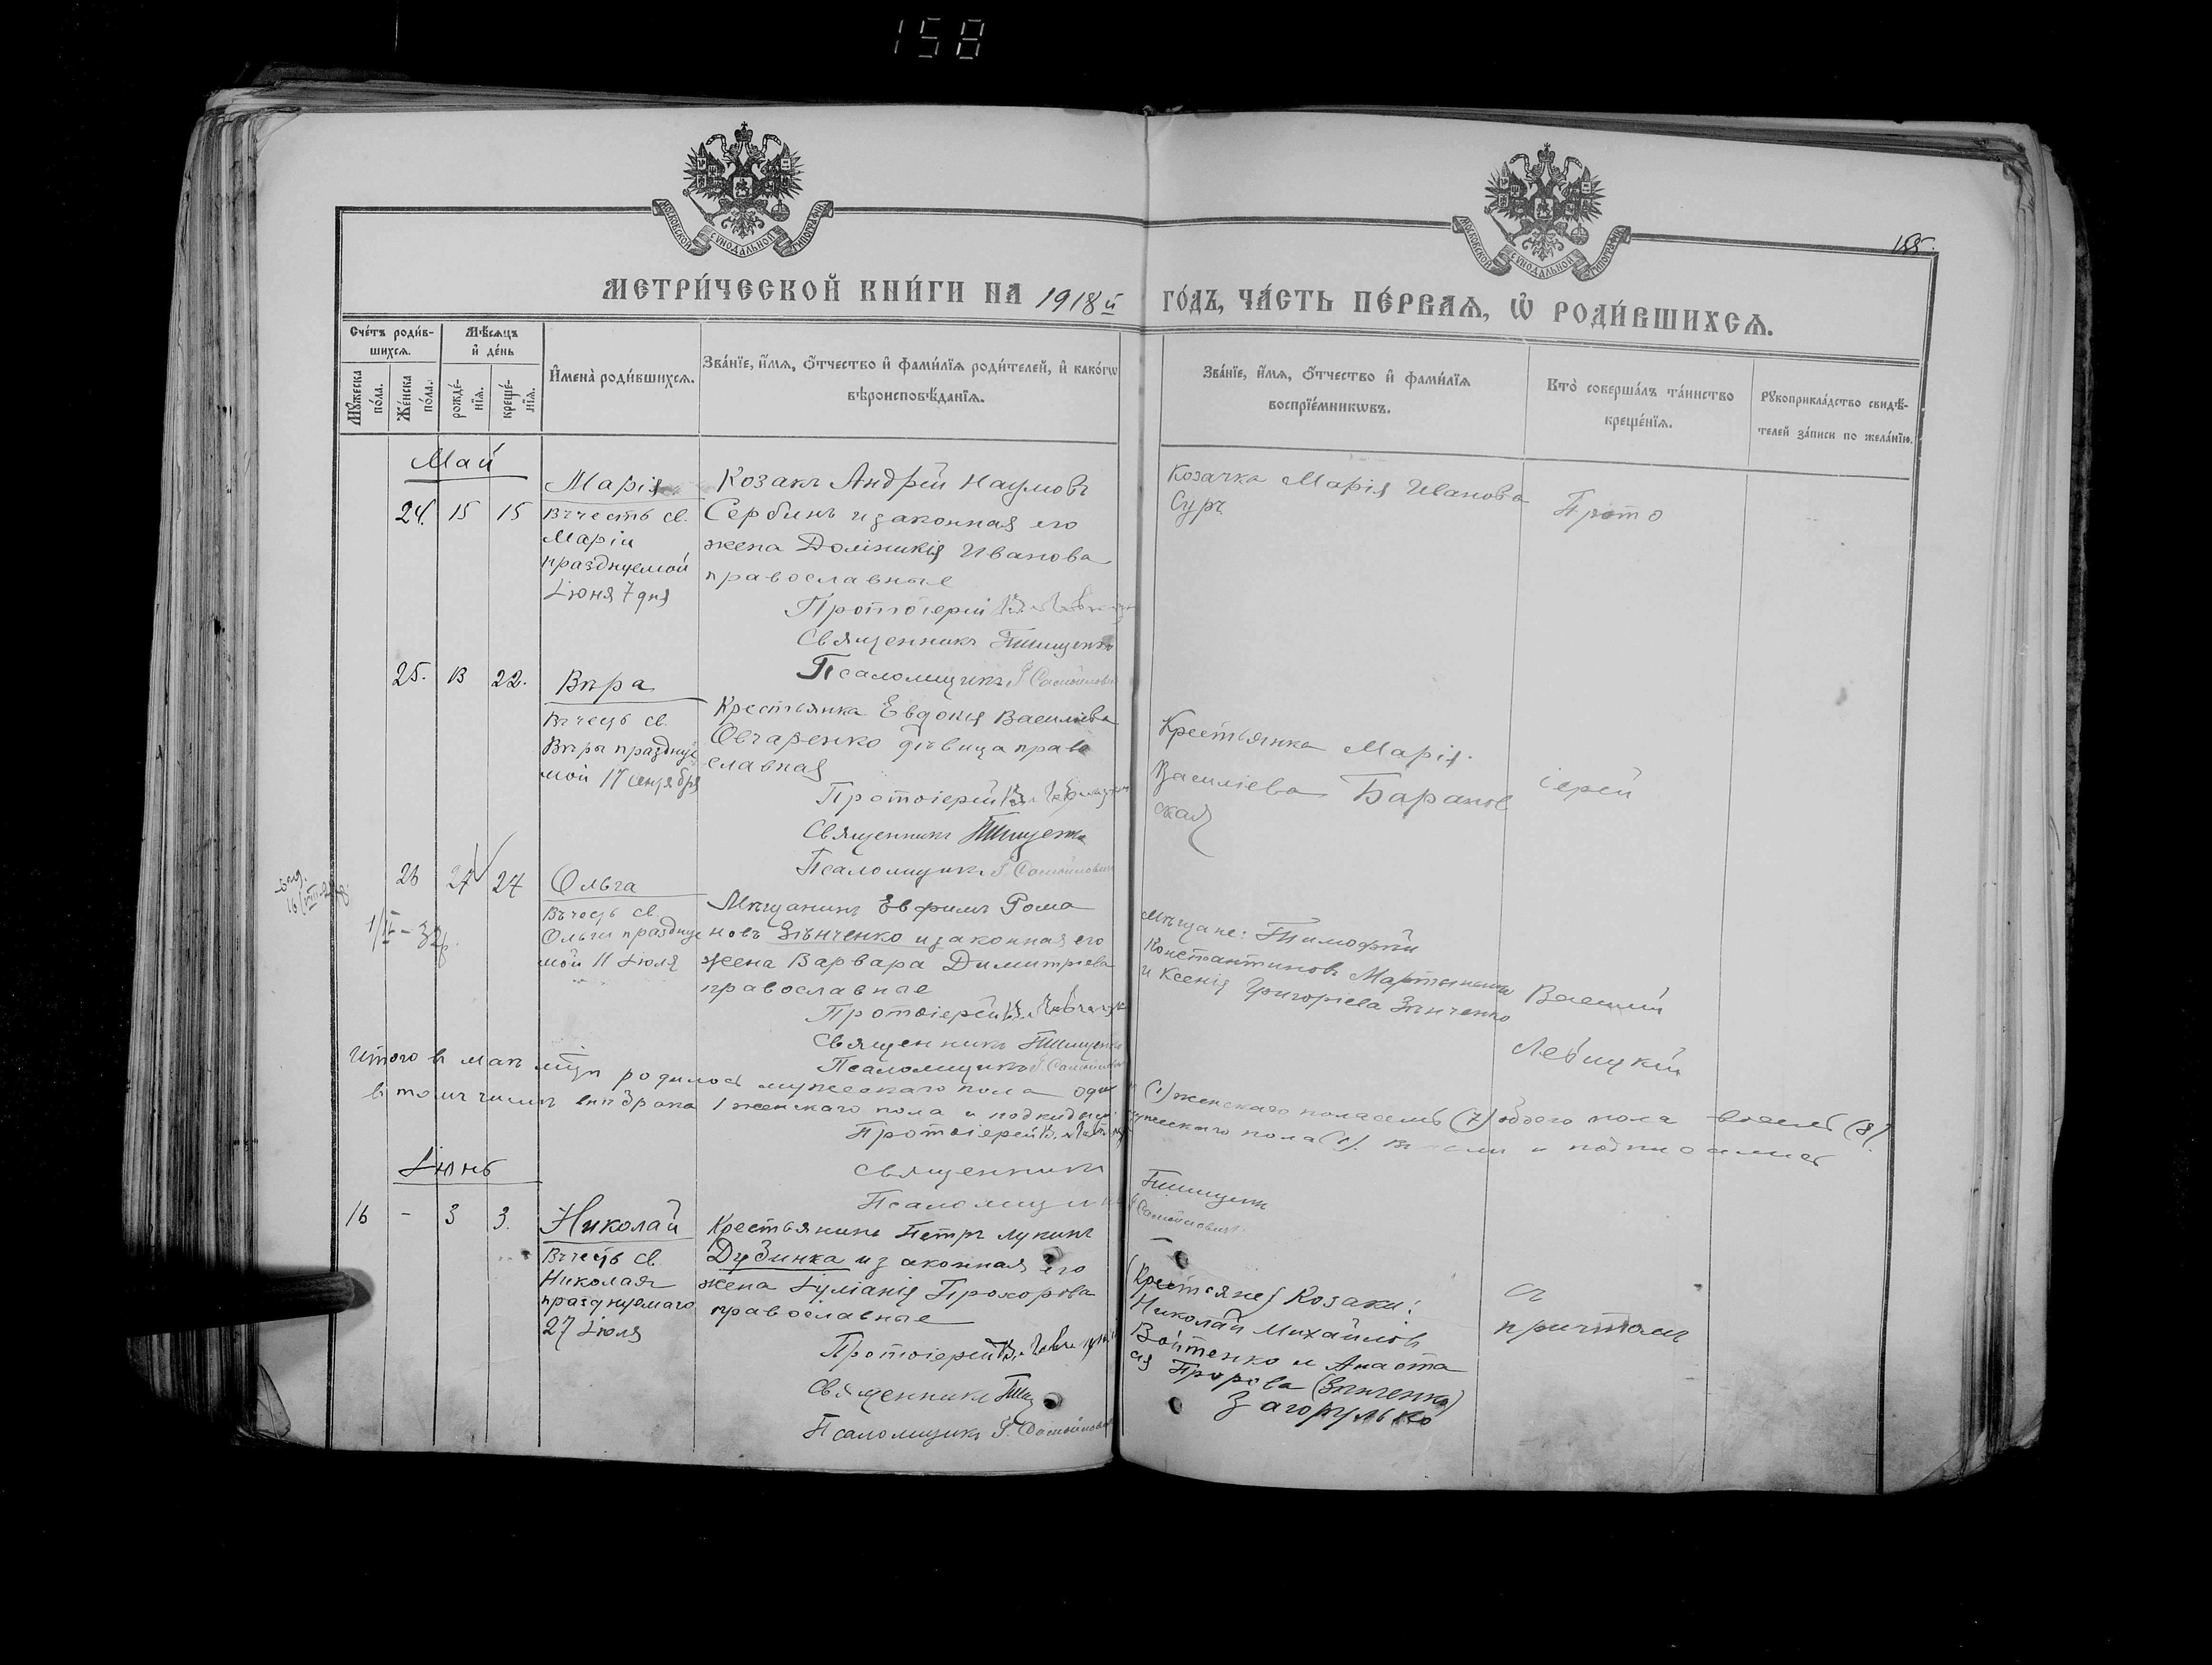 158
МОСКОВСКОЙ СѴНОДАЛЬНОЙ ТИПОГРАФИИ
МОСКОВСКОЙ СѴНОДАЛЬНОЙ ТИПОГРАФИИ
155.
МЕТРИ́ЧЕСКОЙ КНИ́ГИ НА 1918й ГО́ДЪ, ЧА́СТЬ ПЕ́РВАЯ, Ѡ РОДИ́ВШИХСЯ.
Сче́тъ роди́в-
шихся.
Мѣ́сяцъ
и де́нь
Мꙋ́жеска
по́ла.
Же́нска
по́ла.
рожде́-
нїя.
креще́-
нїя.
И҆мена̀ роди́вшихся.
Зва́нїе, и҆́мя, ѻ҆́тчество и҆ фами́лїя роди́телей, и҆ како́гѡ
вѣроисповѣ́данїя.
Зва́нїе, и҆́мя, ѻ҆́тчество и҆ фами́лїя
воспрїе́мникѡвъ.
Кто̀ соверша́лъ та́инство
креще́нїя.
Рꙋкоприкла́дство свидѣ́-
телей за́писи по жела́нїю.
Май
24. 15 15
Марія
Въ честь св.
Маріи
празднуемой
Іюня 7 дня
Козакъ Андрей Наумовъ
Сербинъ и законная его
жена Доминикія Иванова
православные
Протоіерей
Священникъ Тищенко
Псаломщикъ Г. Самойлович
Козачка Марія Иванова
Суръ
Прото
25. 13 22.
Вѣра
Въ честь св.
Вѣры праздnуе
мой 17 сентября
Крестьянка Евдокія Василіева
Овчаренко дѣвица право
славная
Протоіерей
Священникъ Тищенко
Псаломщикъ Г. Самойлович
Крестьянка Марія
Василіева Баранов
ская
іерей
1/II - 32
26 24 24
Ольга
Въ честь св.
Ольги праздnуе
мой 11 Іюля
Мѣщанинъ Евфимъ Рома
новъ Зѣнченко и законная его
жена Варвара Димитріева
православные
Протоіерей
Священникъ Тищенко
Псаломщикъ Г. Самойлович
Мѣщане: Тимофей
Константиновъ Мартыненко
и Ксенія Григоріева Зѣнченко
Василій
Левицкій
Итого въ маѣ мцѣ родилось мужескаго пола один (1) женскаго пола семь (7) обоего пола восемь (8).
въ томъ числѣ внѣ брака 1 женскаго пола и подкидышей мужескаго пола (1). и подписались
Протоіерей
Священникъ Тищенко
Псаломщикъ Г. Самойлович
Іюнь
16 - 3 3.
Николай
Въ честь св.
Николая
празднуемаго
27 Іюля
Крестьянинъ Петръ Лукинъ
Дубинка и законная его
жена Іуліанія Прохорова
православные
Протоіерей
Священникъ
Псаломщикъ Г. Самойлович
(Крестьяне) Козаки:
Николай Михайловъ
Войтенко и Анаста
сія (Зѣнченко)
Загорулько
съ
причтомъ